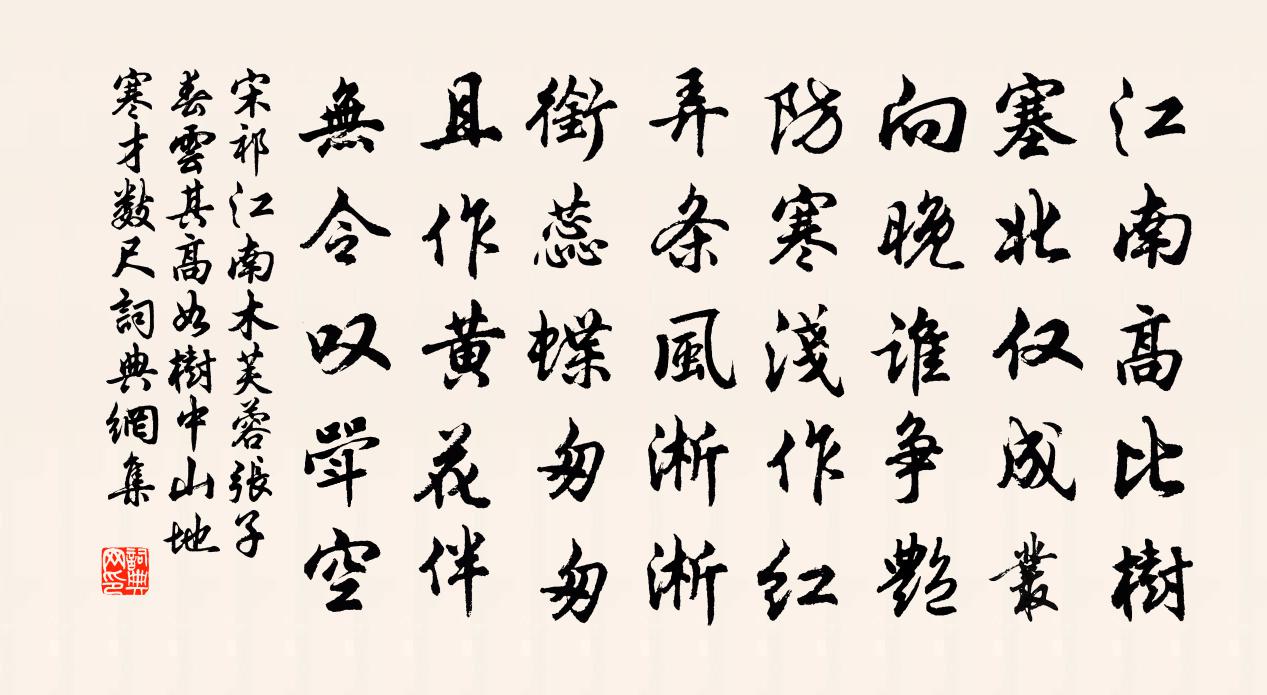 江南高比樹
塞北仅成叢
向晚誰争艷
防寒淺作红
弄条風淅淅
銜蕊蝶匆匆
且作黄花伴
無令叹斝空
宋祁江南木芙蓉張子
春雲其高如樹中山地
寒才数尺詞典網集
詞典网印